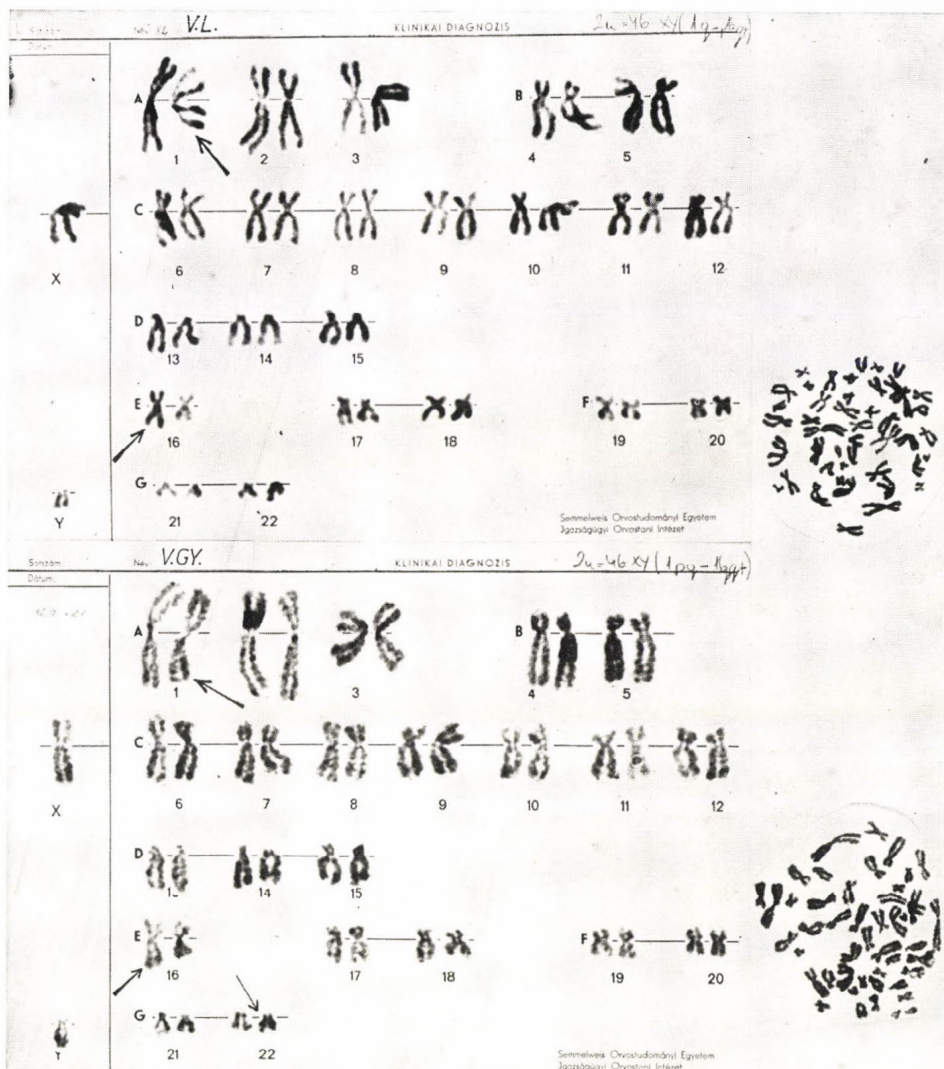 V.L. KLINIKAI DIAGNOZIS 2n=46 XY
A
1 2 3
B
4 5
C
X
6 7 8 9 10 11 12
D
13 14 15
E
16 17 18
F
19 20
G
Y
21 22
Semmelweis Orvostudományi Egyetem
Igazságügyi Orvostani Intézet
Sorszám: Név: V.GY. KLINIKAI DIAGNOZIS 2n=46 XY
Dátum:
A
1 3
B
4 5
C
X
6 7 8 9 10 11 12
D
14 15
E
16 17 18
F
19 20
G
Y
21 22
Semmelweis Orvostudományi Egyetem
Igazságügyi Orvostani Intézet